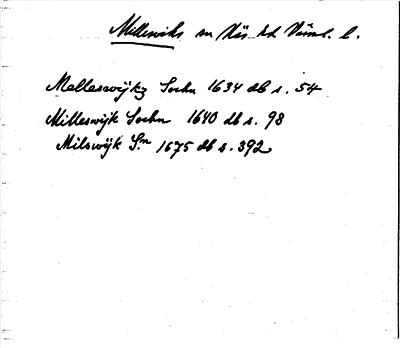 Millesviks sn Näs hd Värml. l.
Melleswijkz Sochn 1634 db s. 54
Milleswijk Sochn 1640 db s. 98
Milswijk Sn 1675 db s. 392